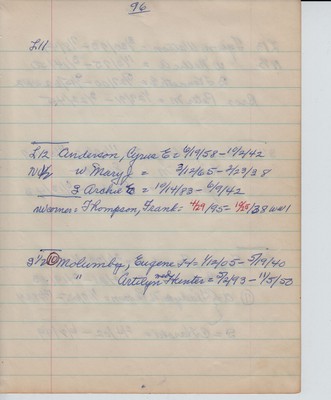 96
L11
L12 Anderson, Cyrus E = 6/19/58 - 10/2/42
N1/2 w Mary J = 3/12/65 - 2/23/38
S Archie E = 10/14/83 - 6/9/42
NW corner = Thompson, Frank = 4/29/95 - 12/5/38 WW1
S 1/2 10 Molumby, Eugene H = 1/12/05 - 5/19/40
" Hunter = 5/2/93 - 11/5/50